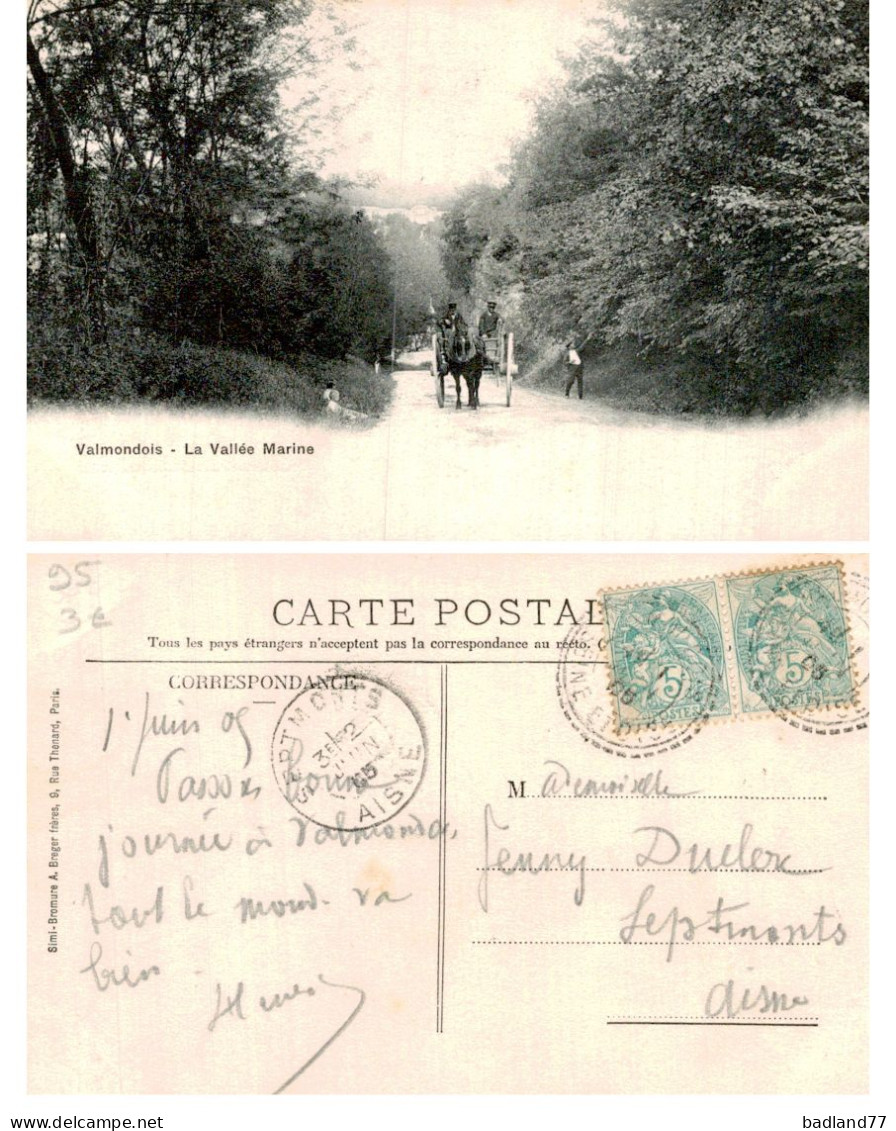 Valmondois - La Vallée Marine
95
3€
CARTE POSTAL
Tous les pays étrangers n'acceptent pas la correspondance au recto. (
CORRESPONDANCE
SEPTMONTS
3E 2
JUIN
05
AISNE
5
5
POSTES
1er Juin 05
Passons bonne
journée à Valmondois,
tout le monde va
bien
Henri
M Ademoiselle
Jenny Duclex
Septmonts
Aisne
Simi-Bromure A. Breger frères, 9, Rue Thenard, Paris.
delcampe.net
badland77